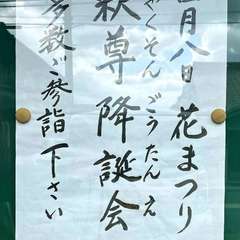 月八日 花まつり
ゃくそん ごうたん え
釈尊降誕会
多数ご参詣下さい